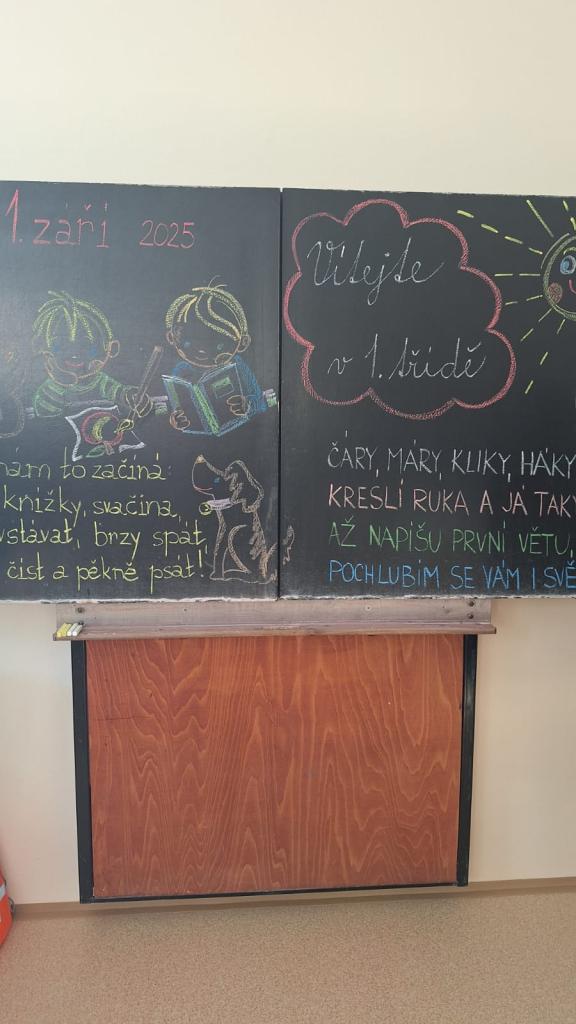 1. září 2025
nám to začíná:
knížky, svačina,
vstávat, brzy spát,
číst a pěkně psát!
Vítejte
v 1. třídě
ČÁRY, MÁRY, KLIKY, HÁKY
KRESLÍ RUKA A JÁ TAKY
AŽ NAPÍŠU PRVNÍ VĚTU,
POCHLUBÍM SE VÁM I SVĚ